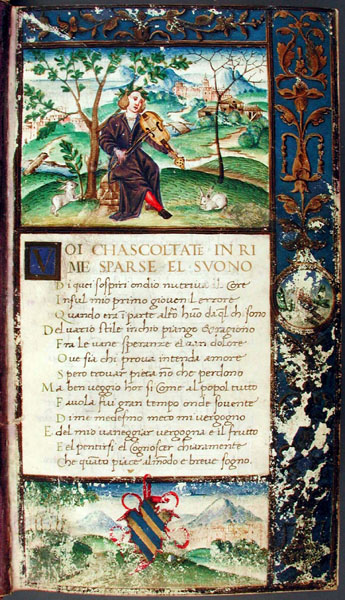 VOI CHASCOLTATE IN RI
ME SPARSE EL SVONO
Di quei sospiri ondio nutriva il core
Insul mio primo giovenil errore
Quando era i parte altro huō da ql ch sono
Del vario stile inchio piango & ragiono
Fra le vane speranze el van dolore
Ove sia chi prova intenda amore
Spero trovar pieta nō che perdono
Ma ben veggio hor si come al popol tutto
Favola fui gran tempo onde sovente
Di me medesmo meco mi vergogno
E del mio vaneggiar vergogna e il frutto
E el pentirsi el cognoscer chiaramente
Che quāto piace al mōdo e breve sogno.